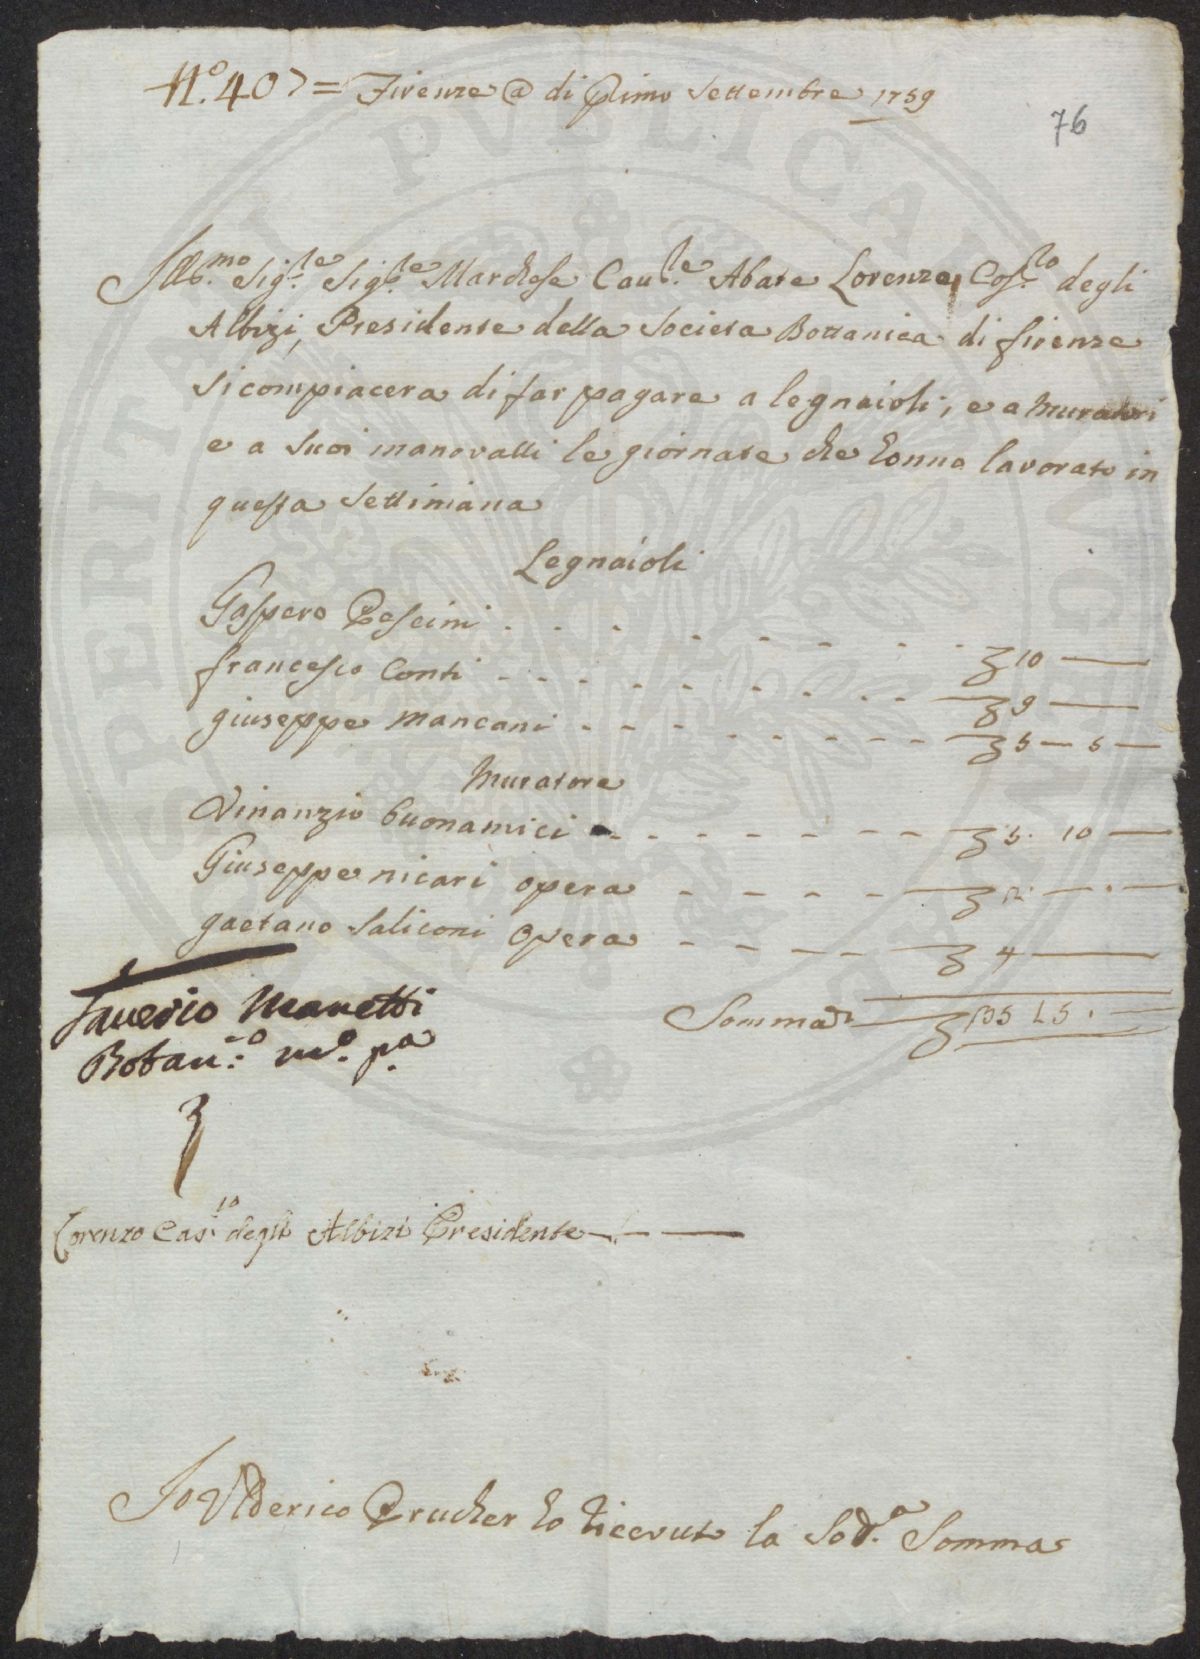 N.º 407 = Firenze @ di Pimo Settembre 1759
76
Ill.mo Sig.re Sig.re Marchese Cau.re Abate Lorenzo Cos.mo degli
Albizi, Presidente della Societa Bottanica di firenze
Si compiacera di far pagare a legnaioli, e a Muratori
e a Suoi manovalli le giornate che honno lavorato in
questa Settimana
Legnaioli
Gaspero Pescini . . . . . . . . . £ 10 —
francesco Conti . . . . . . . . . £ 9 —
giuseppe Mancani . . . . . . . . . £ 5 — 5 —
Muratore
Vinanzio buonamici - - - - - - £ 5. 10 —
Giuseppe nicari opera - - - - £ — . —
gaetano Saliconi Opera - - - - £ 4 —
Somma £
Saverio Manetti
Botan.co m.o p.a
Lorenzo Cas.io degli Albizi Presidente
Io Vlderico Prucher ho riceuuto la Sod.a Somma